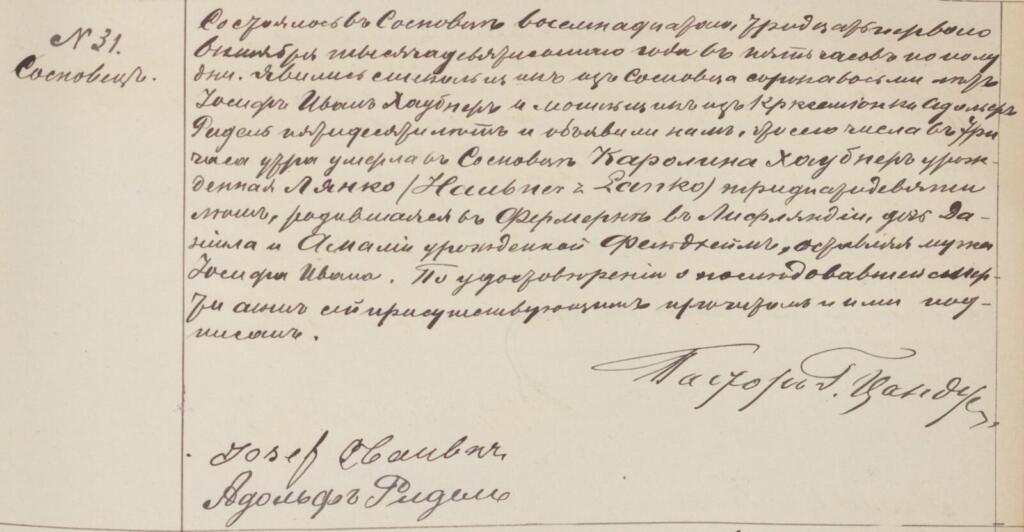 N 31.
Сосновецъ.
Состоялось въ Сосновцѣ восемнадцатаго, тридцать перваго
октября тысяча девятисотаго года въ пять часовъ по полу
дни. Явились стекольщикъ изъ Сосновца сорока восьми лѣтъ
Іосифъ Иванъ Хаубнеръ и изъ Адольфъ
Ридель пятидесяти лѣтъ и объявили намъ, что сего числа въ три
часа утра умерла въ Сосновцѣ Каролина Хаубнеръ урож-
денная Лянко (Haubner z Lanko) тридцати девяти
лѣтъ, родившаяся въ Фермернъ въ Лифляндіи, дочь Да-
ніила и Амаліи урожденной, оставляя мужа
Іосифа Ивана. По удостовѣреніи о послѣдовавшей смер-
ти актъ сей присутствующимъ прочитанъ и ими под-
писанъ.
Пасторъ Г. Цандеръ
Josef Haubner
Адольфъ Ридель